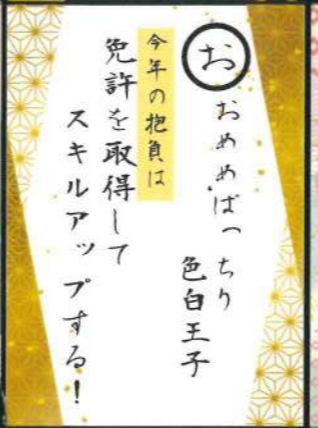 お
おめめぱっちり
色白王子
今年の抱負は
免許を取得して
スキルアップする！